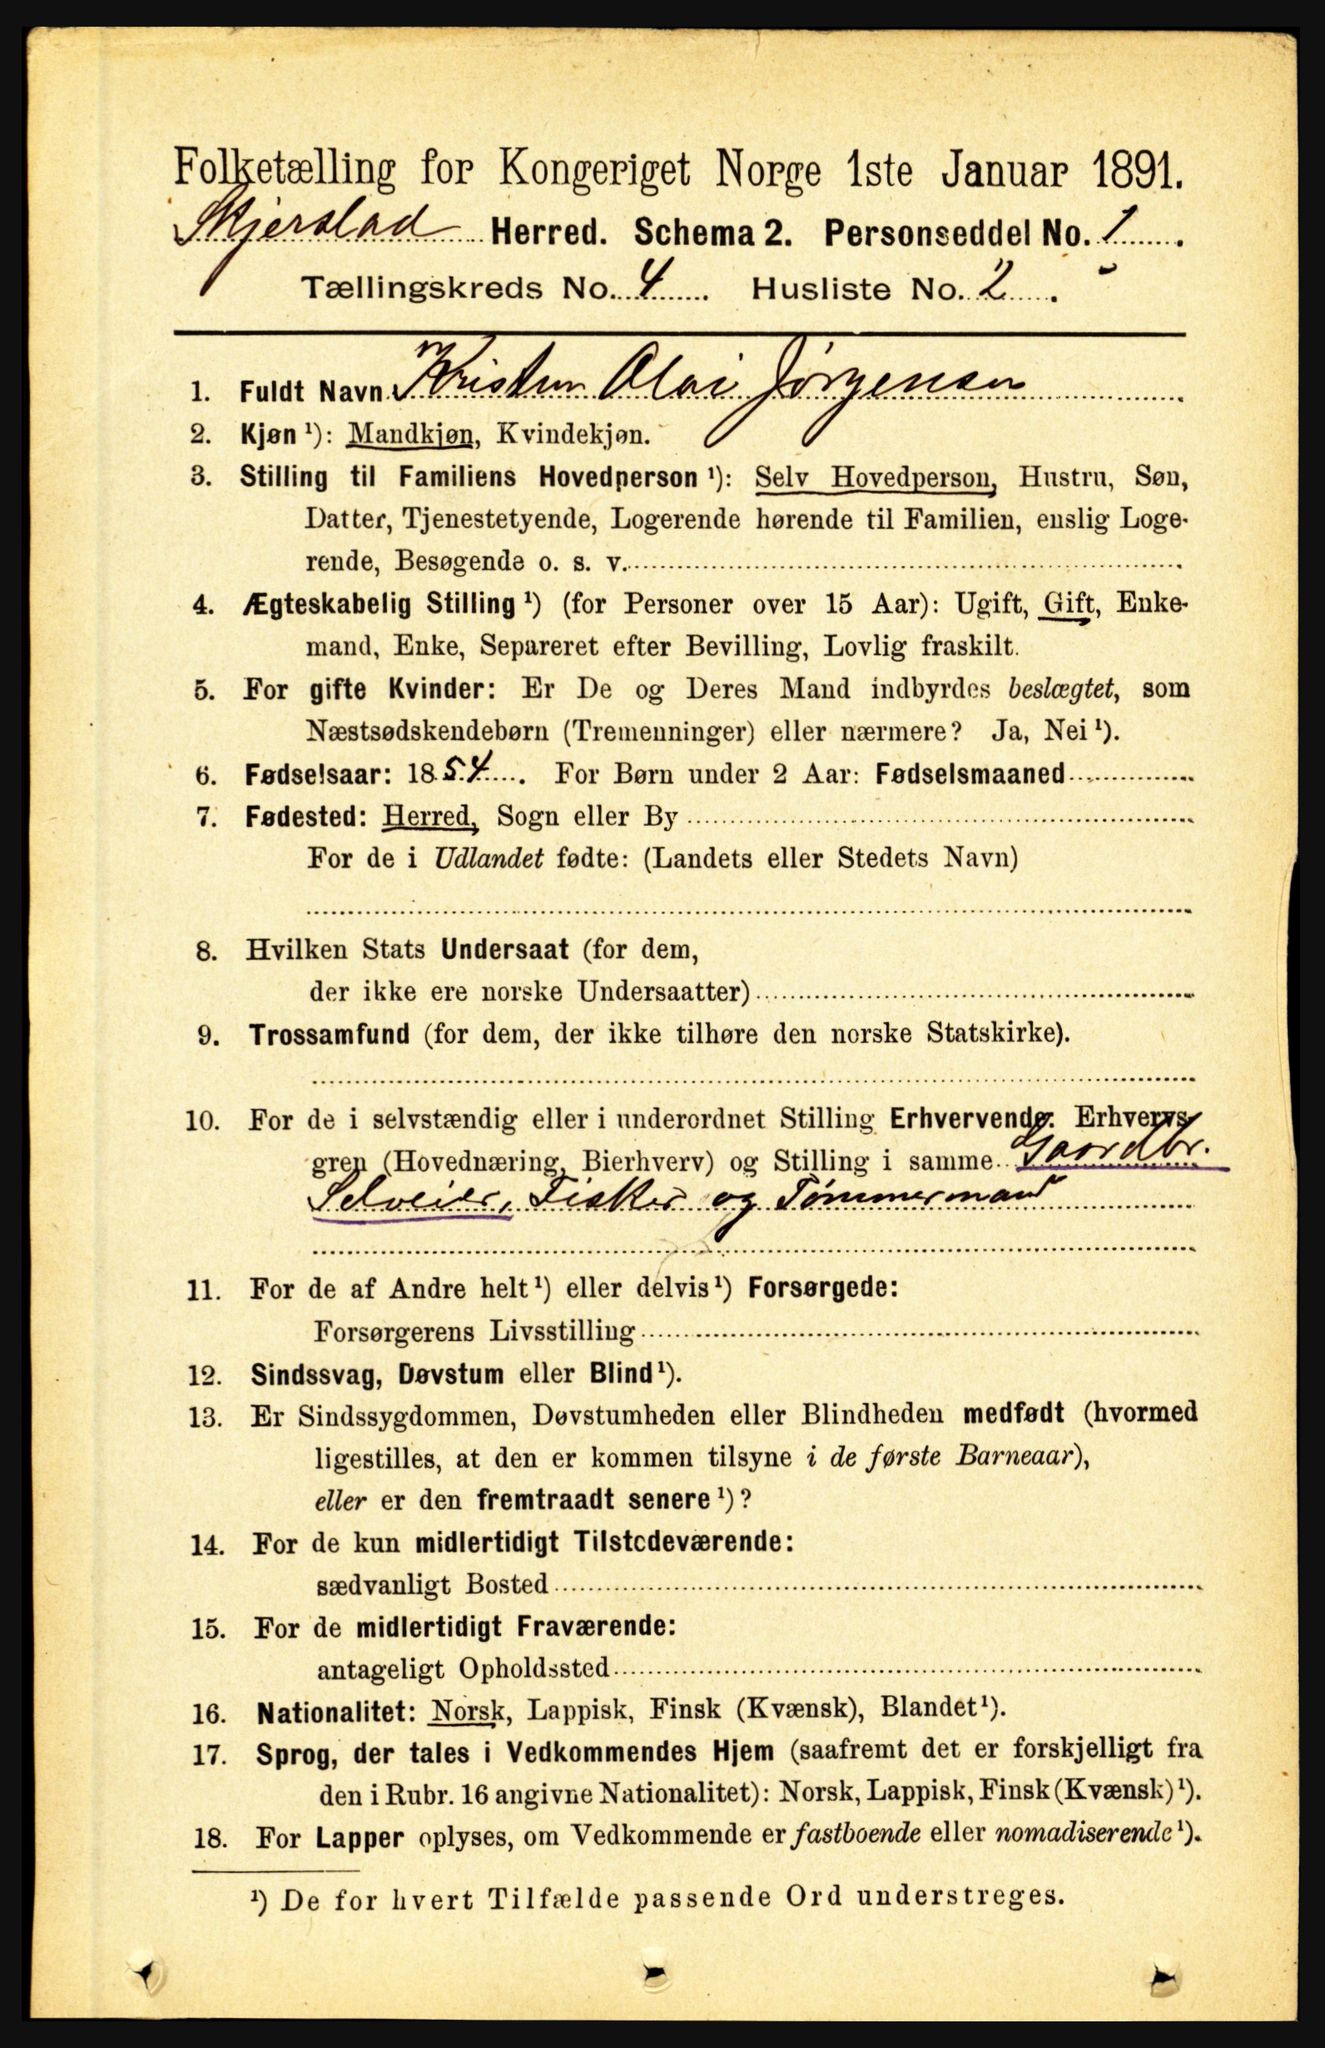 Folketælling for Kongeriget Norge 1ste Januar 1891.
Skjerstad Herred. Schema 2. Personseddel No. 1
Tællingskreds No. 4 Husliste No. 2
1. Fuldt Navn Kristen Olai Jørgensen
2. Kjøn ¹): Mandkjøn, Kvindekjøn.
3. Stilling til Familiens Hovedperson ¹): Selv Hovedperson, Hustru, Søn,
Datter, Tjenestetyende, Logerende hørende til Familien, enslig Loge-
rende, Besøgende o. s. v.
4. Ægteskabelig Stilling ¹) (for Personer over 15 Aar): Ugift, Gift, Enke-
mand, Enke, Separeret efter Bevilling, Lovlig fraskilt.
5. For gifte Kvinder: Er De og Deres Mand indbyrdes beslægtet, som
Næstsødskendebørn (Tremenninger) eller nærmere? Ja, Nei ¹).
6. Fødselsaar: 1854. For Børn under 2 Aar: Fødselsmaaned
7. Fødested: Herred, Sogn eller By
For de i Udlandet fødte: (Landets eller Stedets Navn)
8. Hvilken Stats Undersaat (for dem,
der ikke ere norske Undersaatter)
9. Trossamfund (for dem, der ikke tilhøre den norske Statskirke).
10. For de i selvstændig eller i underordnet Stilling Erhvervende. Erhvervs-
gren (Hovednæring, Bierhverv) og Stilling i samme Gaardbr.
Selveier, Fisker og Tømmermand
11. For de af Andre helt ¹) eller delvis ¹) Forsørgede:
Forsørgerens Livsstilling
12. Sindssvag, Døvstum eller Blind ¹).
13. Er Sindssygdommen, Døvstumheden eller Blindheden medfødt (hvormed
ligestilles, at den er kommen tilsyne i de første Barneaar),
eller er den fremtraadt senere ¹)?
14. For de kun midlertidigt Tilstedeværende:
sædvanligt Bosted
15. For de midlertidigt Fraværende:
antageligt Opholdssted
16. Nationalitet: Norsk, Lappisk, Finsk (Kvænsk), Blandet ¹).
17. Sprog, der tales i Vedkommendes Hjem (saafremt det er forskjelligt fra
den i Rubr. 16 angivne Nationalitet): Norsk, Lappisk, Finsk (Kvænsk) ¹).
18. For Lapper oplyses, om Vedkommende er fastboende eller nomadiserende ¹).
¹) De for hvert Tilfælde passende Ord understreges.